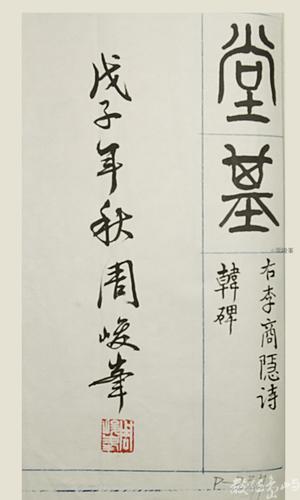 堂基
右李商隱詩
韓碑
戊子年秋周峻峯